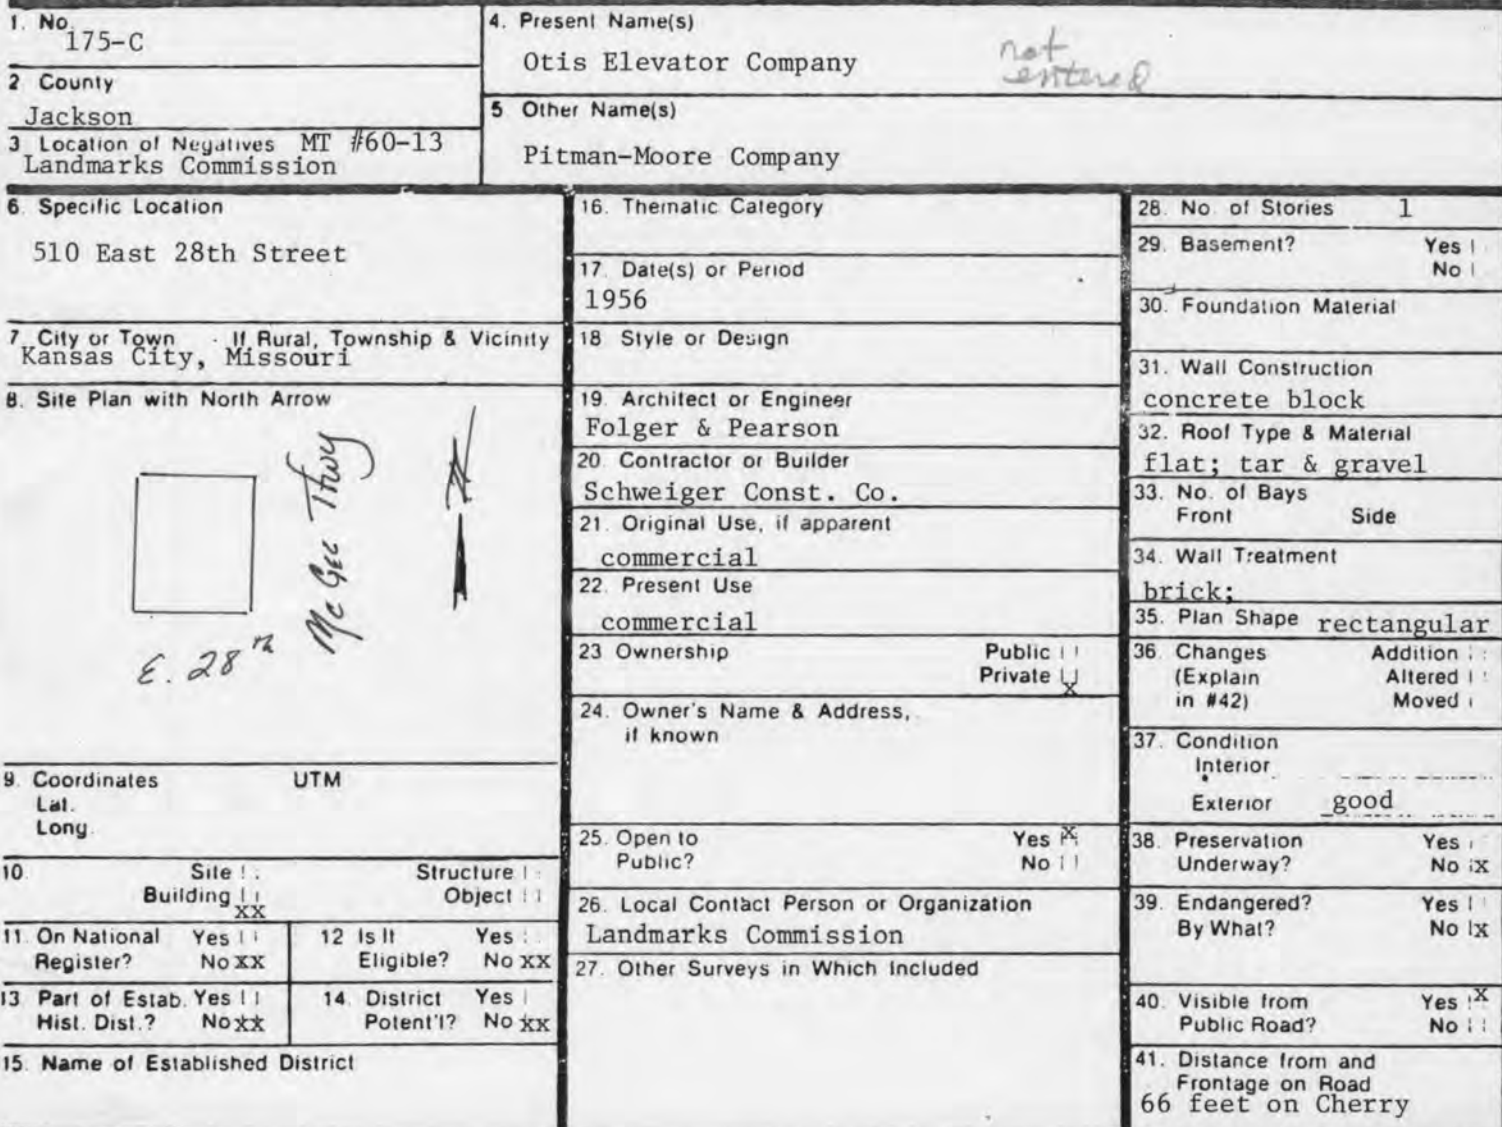 1. No.
175-C
2 County
Jackson
3 Location of Negatives MT #60-13
Landmarks Commission
4. Present Name(s)
Otis Elevator Company
not
entered
5 Other Name(s)
Pitman-Moore Company
6. Specific Location
510 East 28th Street
7 City or Town If Rural, Township & Vicinity
Kansas City, Missouri
8. Site Plan with North Arrow
McGee Tfwy
N
E. 28th
9. Coordinates UTM
Lat.
Long.
10. Site Structure
Building Object
xx
11. On National Yes
Register? No xx
12 Is It Yes
Eligible? No xx
13 Part of Estab. Yes
Hist. Dist.? No xx
14. District Yes
Potent'l? No xx
15. Name of Established District
16. Thematic Category
17. Date(s) or Period
1956
18 Style or Design
19. Architect or Engineer
Folger & Pearson
20. Contractor or Builder
Schweiger Const. Co.
21. Original Use, if apparent
commercial
22. Present Use
commercial
23 Ownership Public
Private
x
24. Owner's Name & Address,
if known
25. Open to Yes x
Public? No
26. Local Contact Person or Organization
Landmarks Commission
27. Other Surveys in Which Included
28. No. of Stories 1
29. Basement? Yes
No
30. Foundation Material
31. Wall Construction
concrete block
32. Roof Type & Material
flat; tar & gravel
33. No. of Bays
Front Side
34. Wall Treatment
brick;
35. Plan Shape rectangular
36. Changes Addition
(Explain Altered
in #42) Moved
37. Condition
Interior
Exterior good
38. Preservation Yes
Underway? No x
39. Endangered? Yes
By What? No x
40. Visible from Yes x
Public Road? No
41. Distance from and
Frontage on Road
66 feet on Cherry